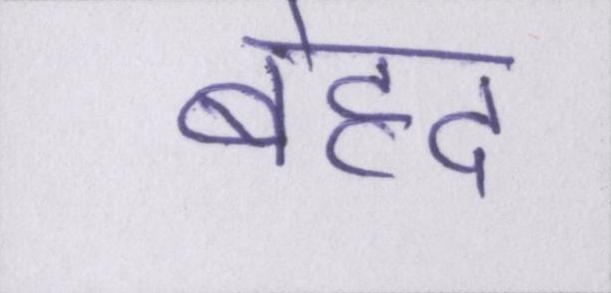 बेहद